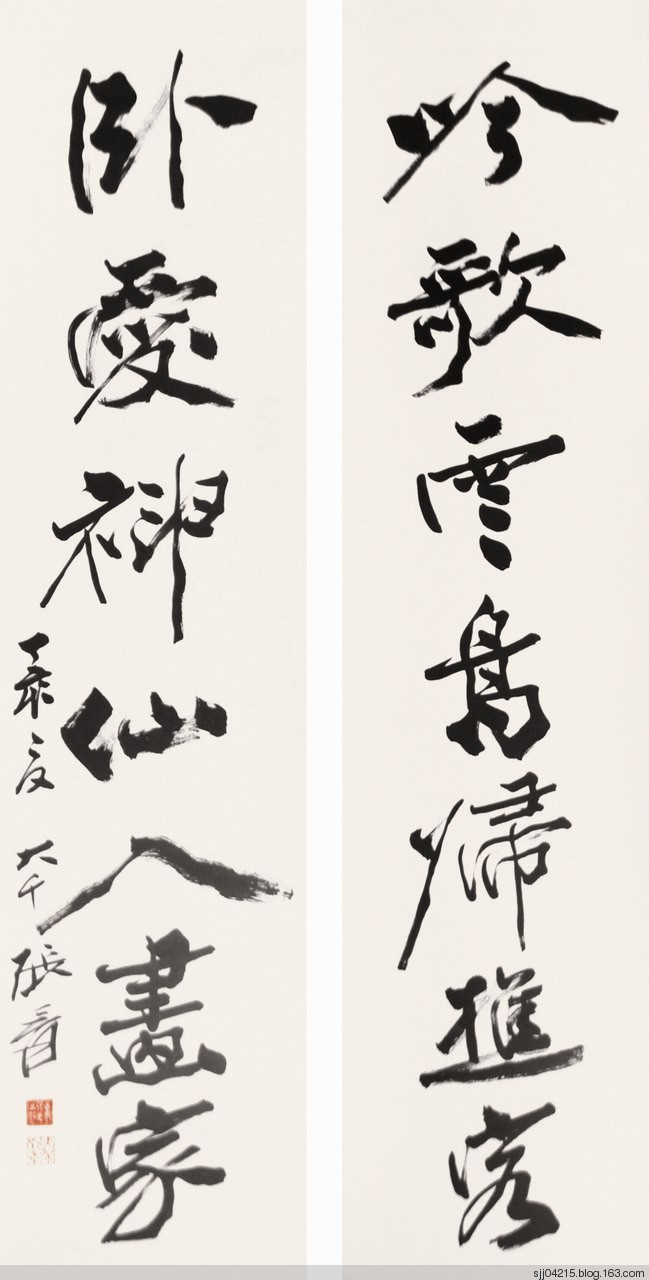 吟歌雲鳥歸樵客
臥愛神仙入畫家
大千張爰
sjj04215.blog.163.com